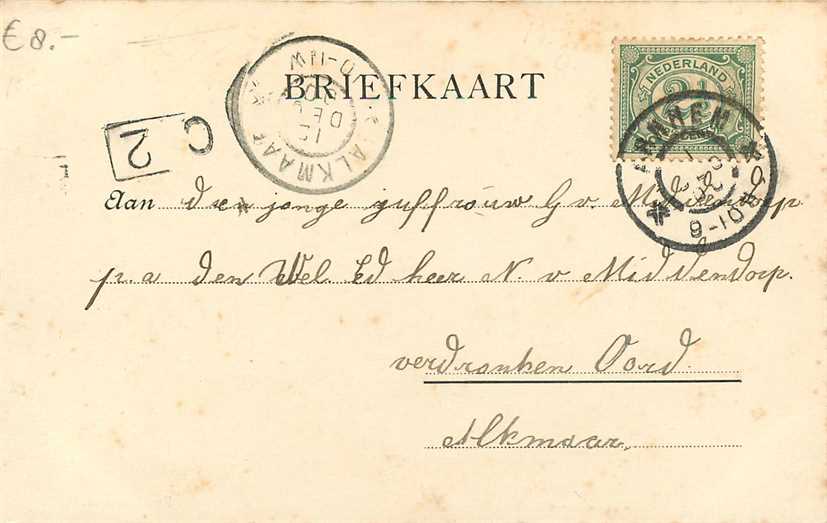 € 8.-
BRIEFKAART
NEDERLAND
2½
ALKMAAR
DEC
ARNHEM
C 2
Aan den jonge juffrouw G v. Middendorp
p.a den Wel. Ed heer N. v Middendorp.
verdronken Oord.
Alkmaar,